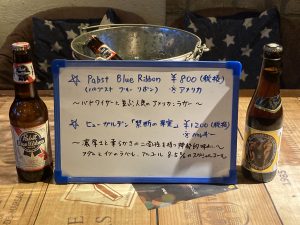 ☆ Pabst Blue Ribbon ¥800(税抜)
(パブスト ブルー リボン) ※アメリカ
〜バドワイザーと並ぶ、人気のアメリカンラガー〜
☆ ヒューガルデン「禁断の果実」 ¥1200(税抜)
※ベルギー
〜濃厚さと柔らかさの二面性を持つ神秘的な味わい〜
アダムとイヴのラベル、アルコール8.5%の
Pabst
Blue Ribbon